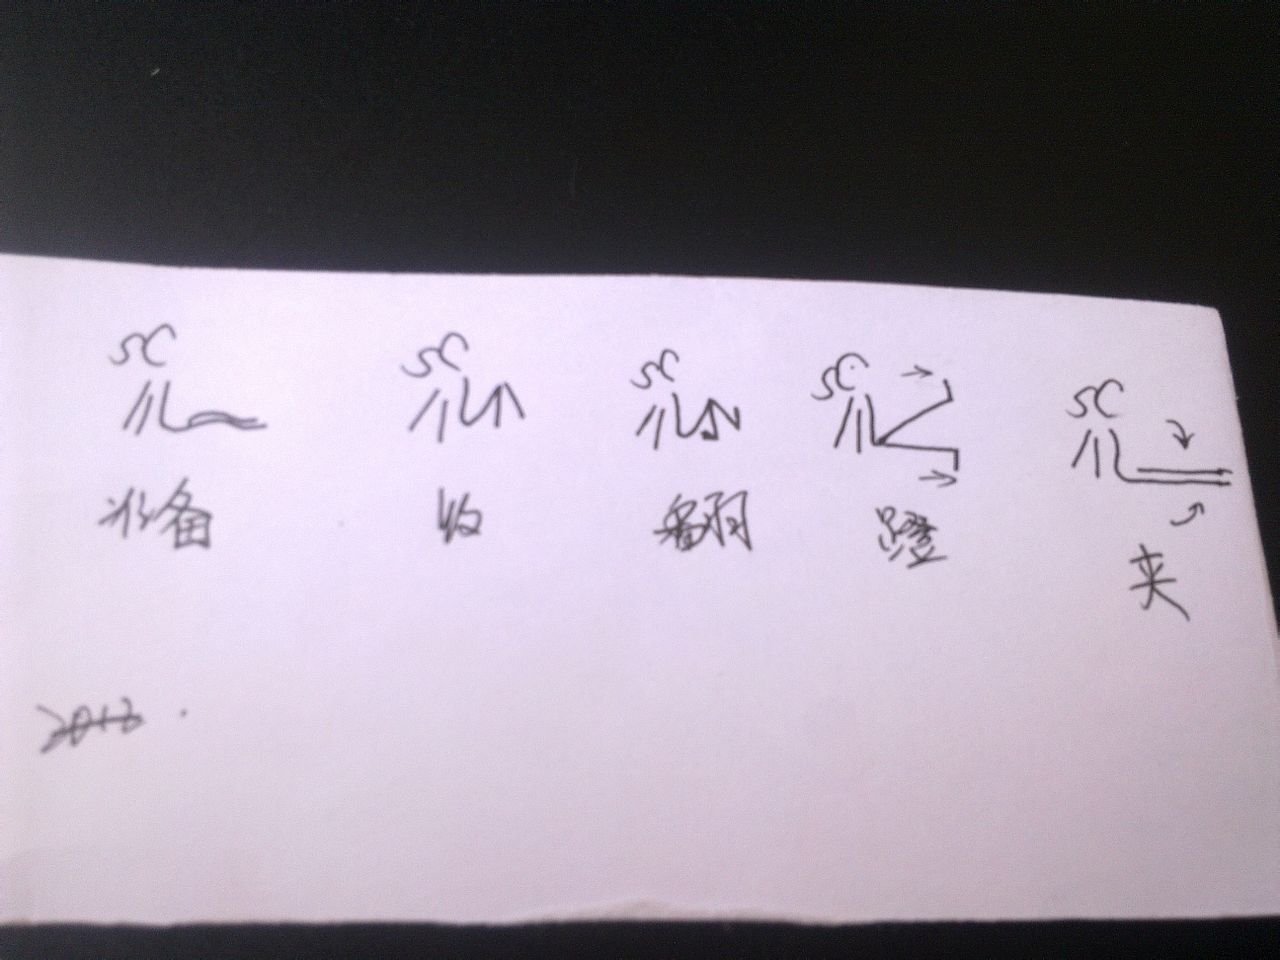 准备 收 翻 蹬 夹